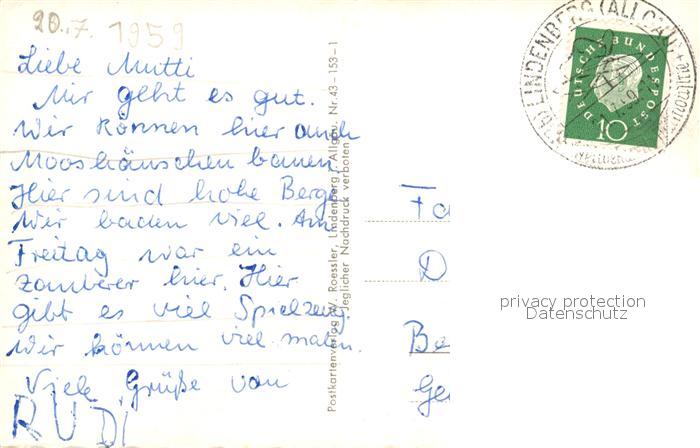 20.7. 1959
Liebe Mutti
Mir geht es gut.
Wir können hier auch
Mooshäuschen bauen.
Hier sind hohe Berge.
Wir baden viel. Am
Freitag war ein
Zauberer hier. Hier
gibt es viel Spielzeug.
Wir können viel malen.
Viele Grüße von
RUDI
Postkartenverlag W. Roessler, Lindenberg i. Allgäu. Nr. 43-153-1
Jeglicher Nachdruck verboten
LINDENBERG (ALLGÄU)
DEUTSCHE BUNDESPOST
10
Fa
D
Be
Ge
privacy protection
Datenschutz